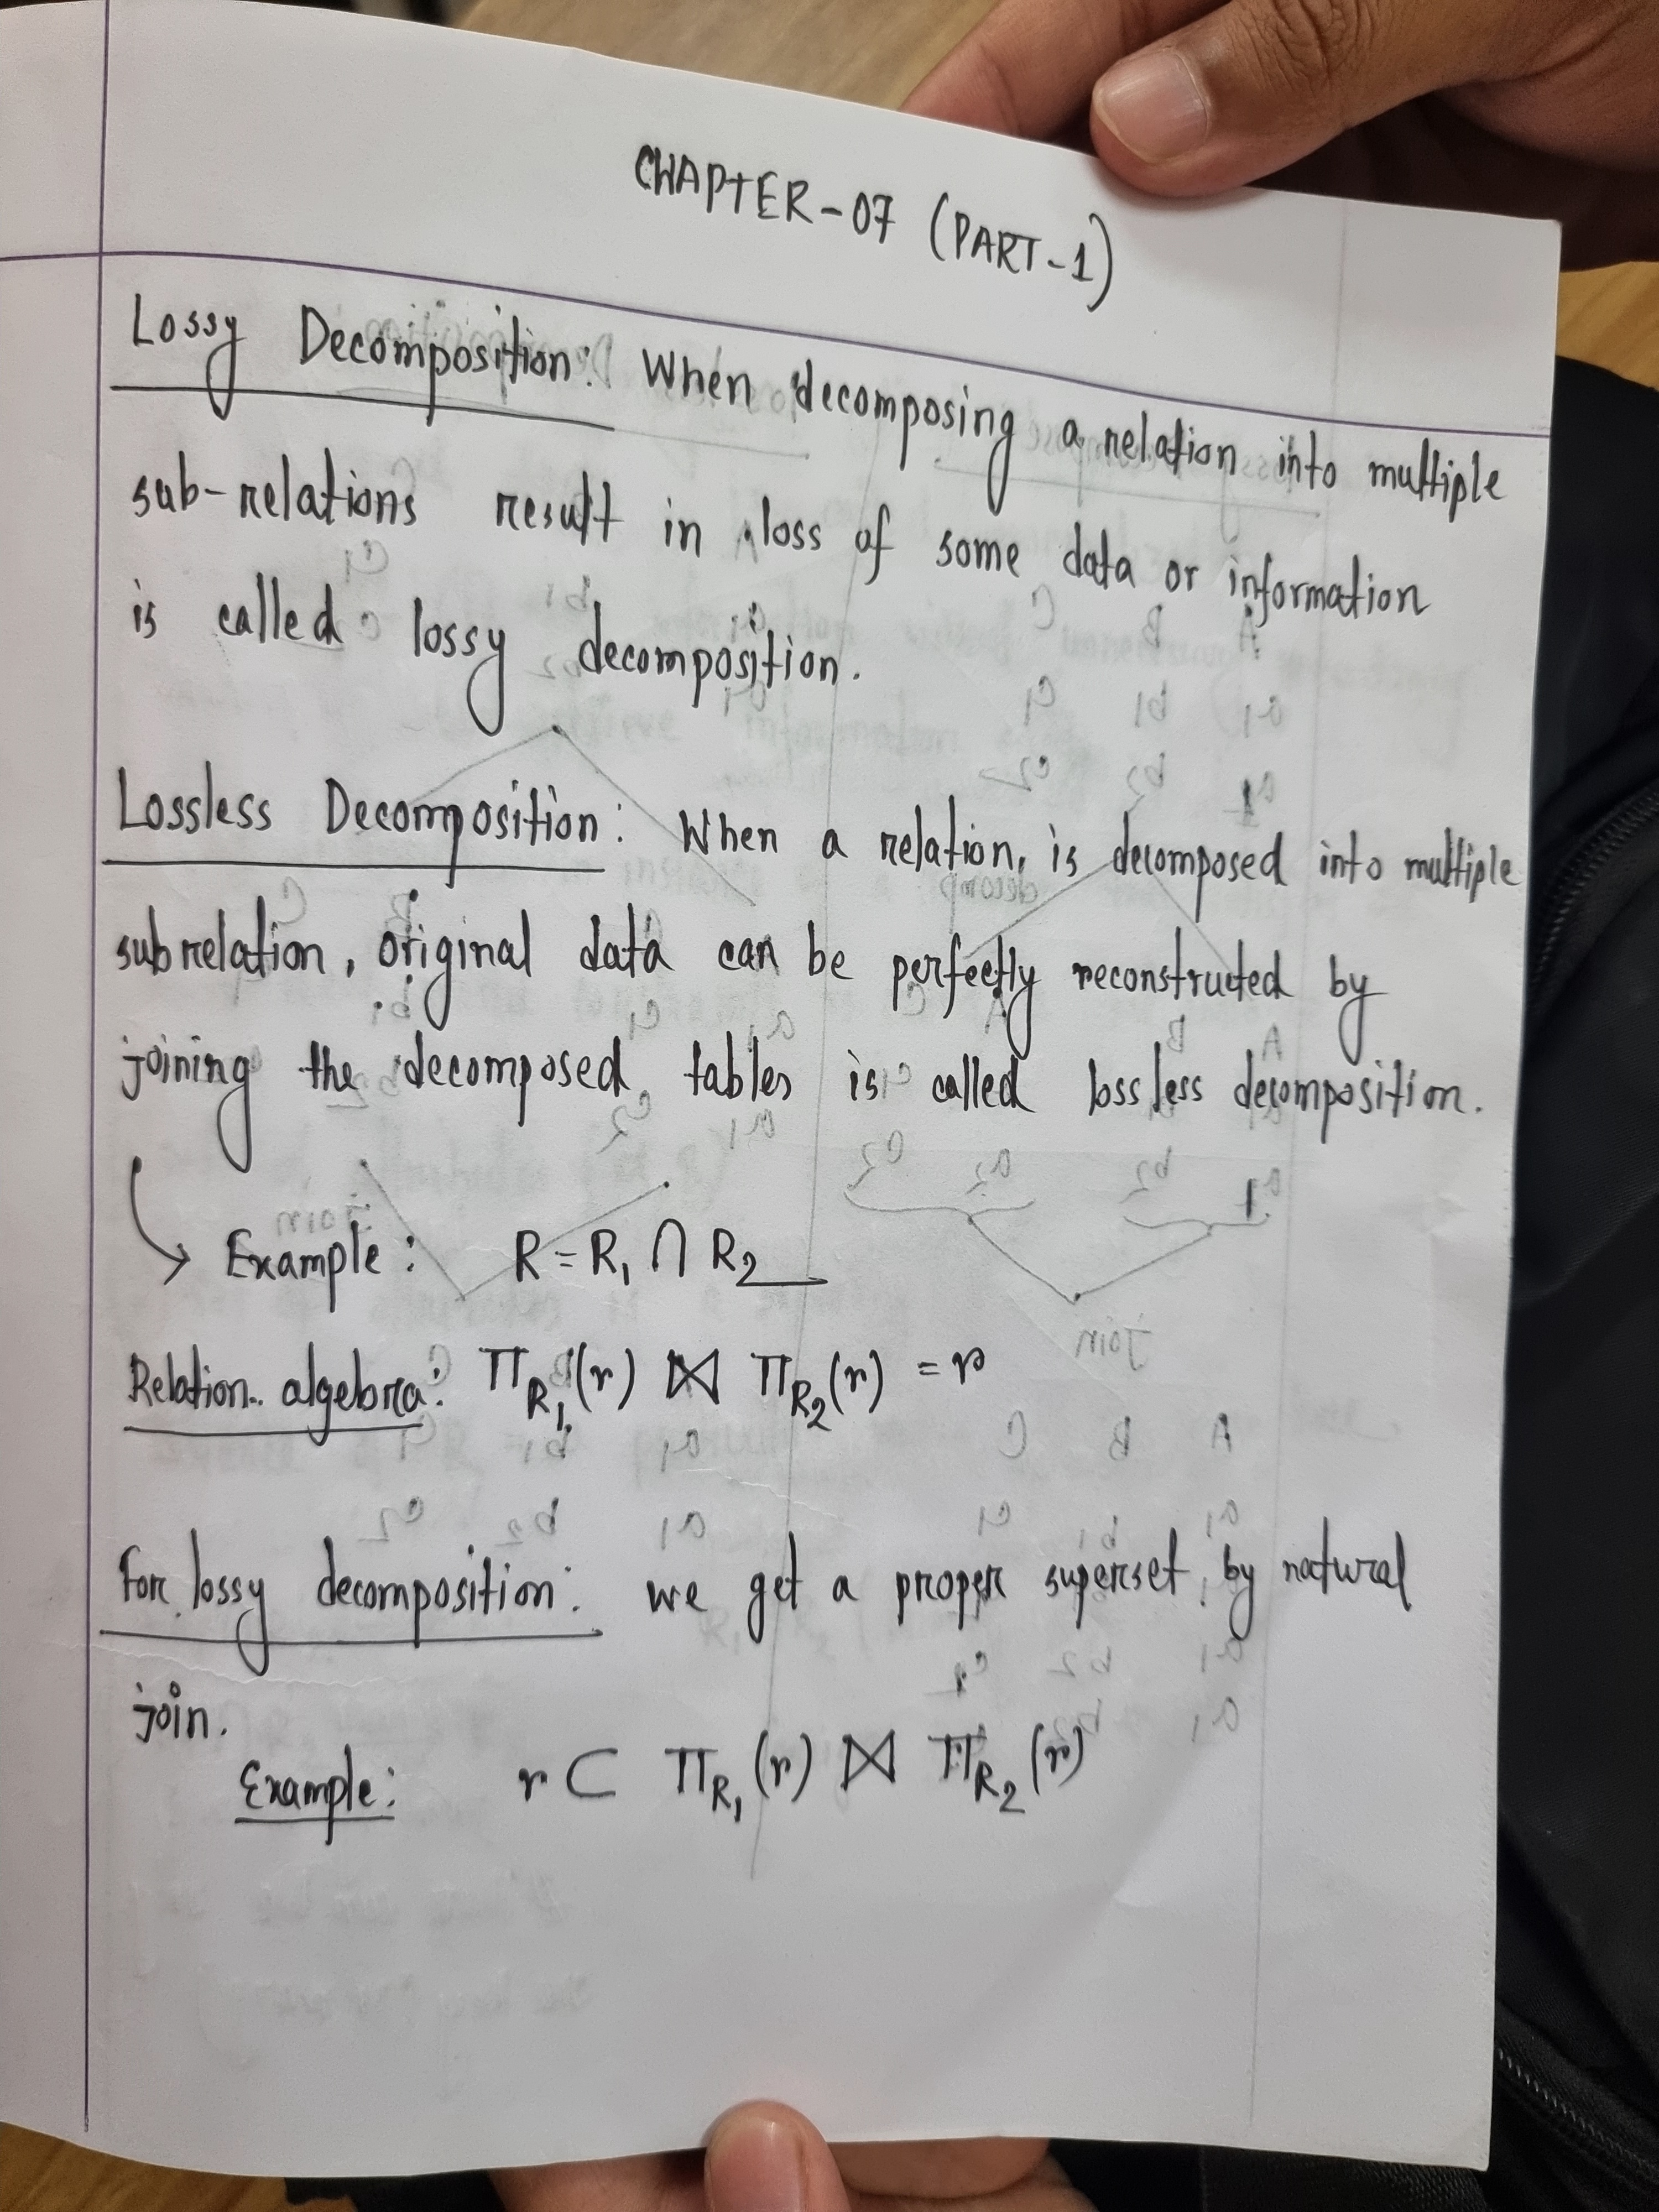 CHAPTER-07 (PART-1)
Lossy Decomposition: When decomposing a relation into multiple
sub-relations result in loss of some data or information
is called lossy decomposition.
Lossless Decomposition: When a relation is decomposed into multiple
subrelation, original data can be perfectly reconstructed by
joining the decomposed tables is called lossless decomposition.
→ Example: R = R₁ ∩ R₂
Relation algebra: π_R₁(r) ⋈ π_R₂(r) = r
For lossy decomposition: we get a proper superset by natural
join.
Example: r ⊂ π_R₁(r) ⋈ π_R₂(r)